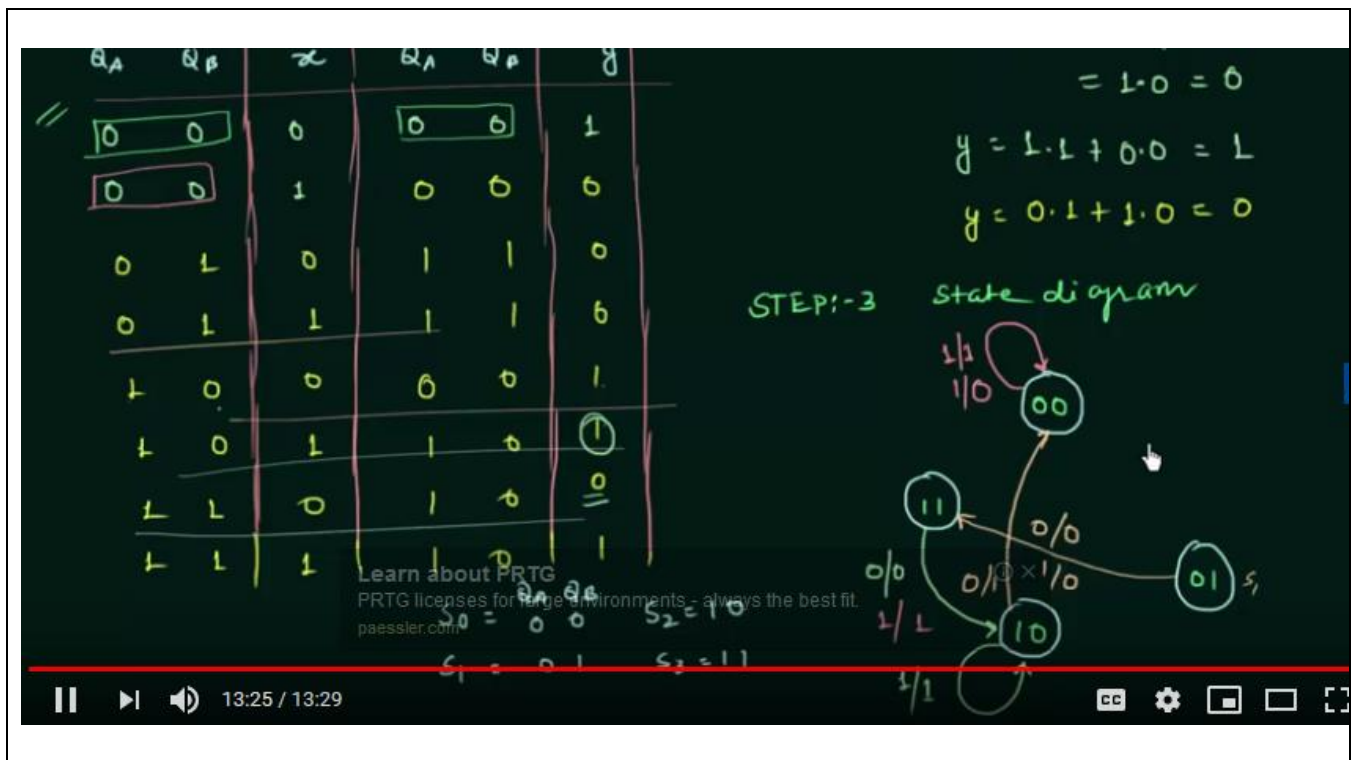 QA QB x QA QB y
0 0 0 0 0 1
0 0 1 0 0 0
0 1 0 1 1 0
0 1 1 1 1 0
1 0 0 0 0 1
1 0 1 1 0 1
1 1 0 1 0 0
1 1 1 1 0 1
= 1.0 = 0
y = 1.1 + 0.0 = 1
y = 0.1 + 1.0 = 0
STEP:-3 state diagram
1/1
1/0
00
11
0/0
1/0
01 S1
0/0
1/1
0/1
10
1/1
QA QB
S0 = 0 0 S2 = 10
S1 = 01 S3 = 11
Learn about PRTG
PRTG licenses for large environments - always the best fit.
paessler.com
13:25 / 13:29
CC